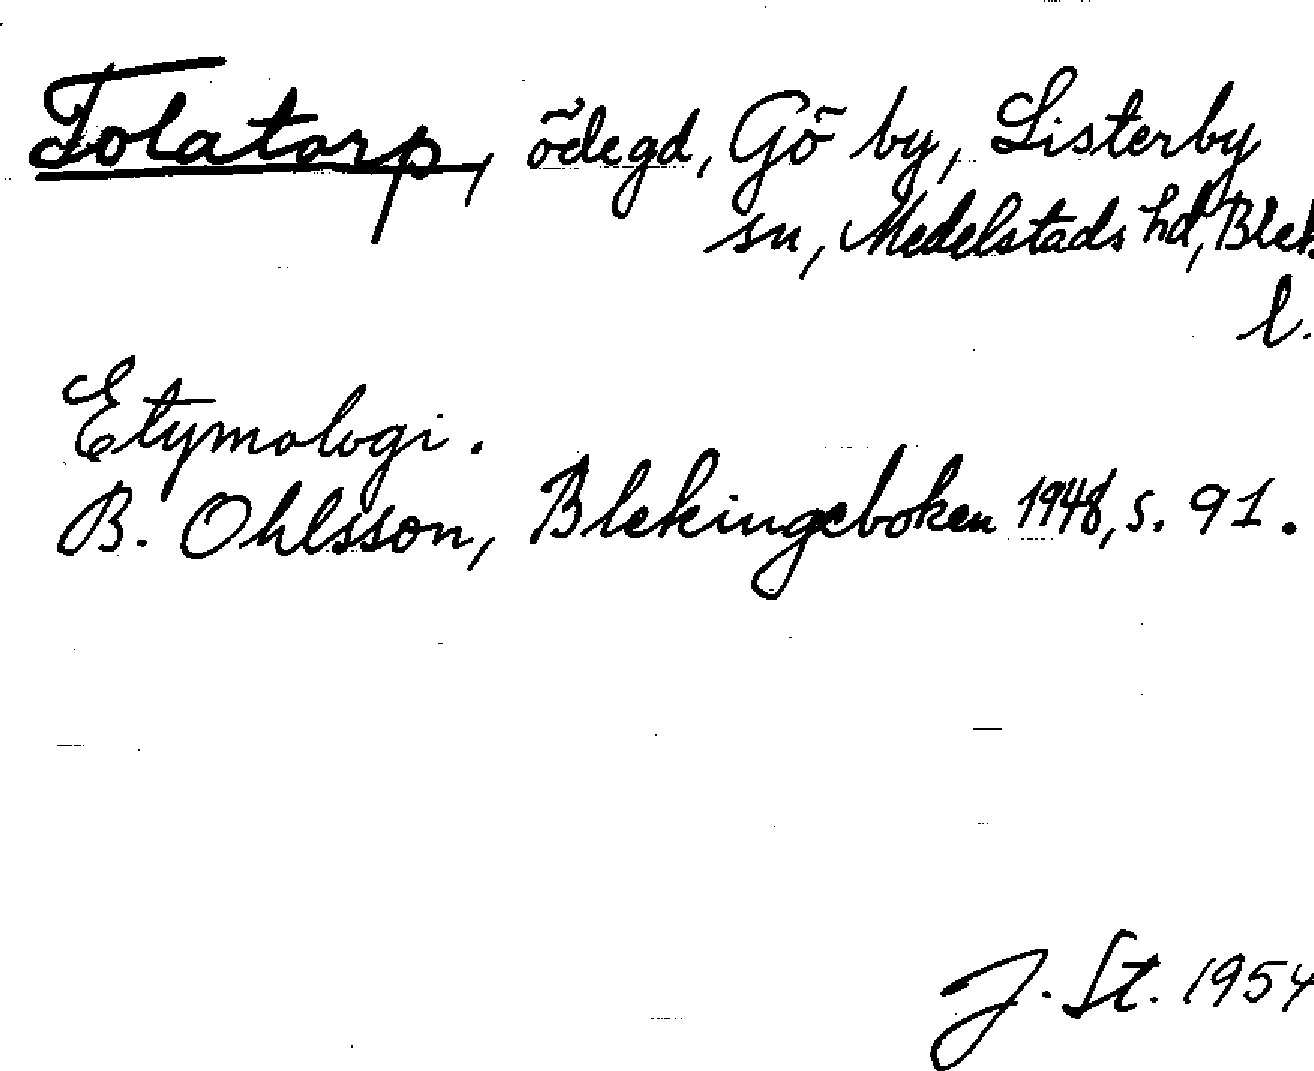 Tolatorp, ödegd, Gö by, Listerby
sn, Medelstads hd, Blek.
l.
Etymologi.
B. Ohlsson, Blekingeboken 1948, s. 91.
J. St. 1954